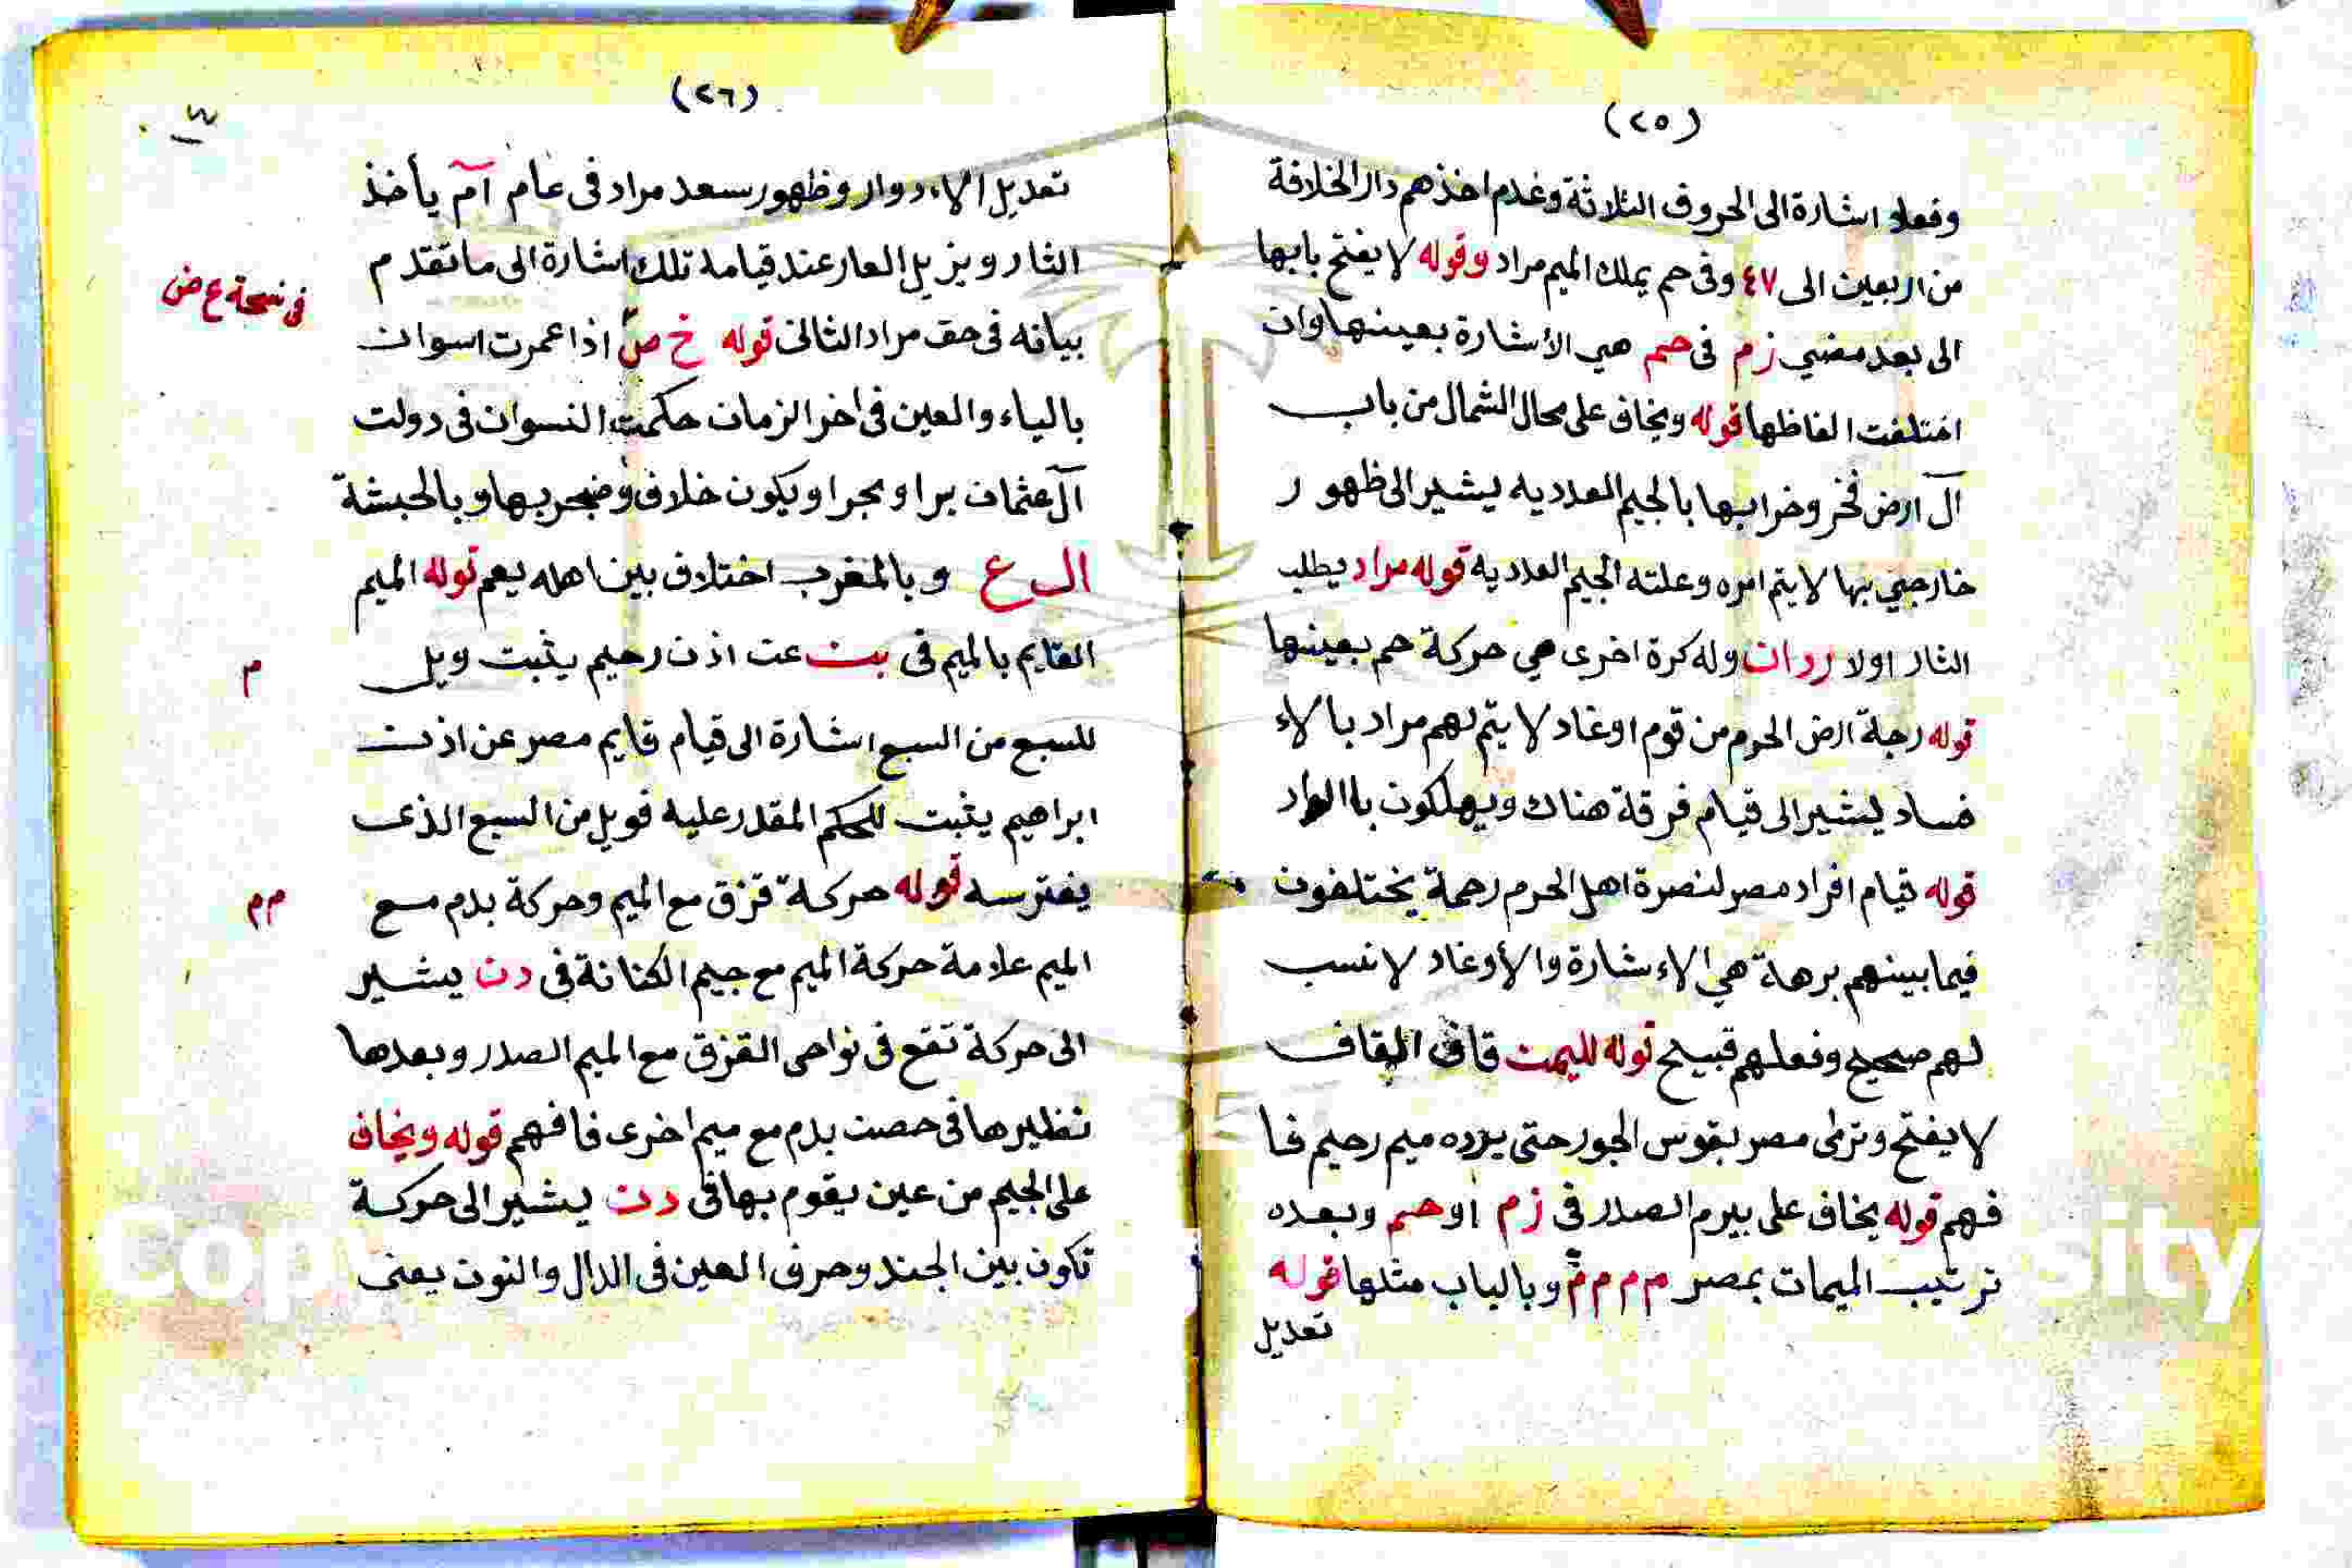 (٢٥)
وفعلو اشارة الى الحروف الثلاثة وغدم اخذهم دار الخلافة
من اربعين الى ٤٧ وفى حم يملك الميم مراد وقوله لا يفتح بابها
الى بعد مضي زم فى حم هي الأشارة بعينها وان
اختلفت الفاظها قوله ويخاف على محال الشمال من باب
آل ارض نخر وخرابها بالجيم العدديه ليشير الى ظهور
خارجي بها لا يتم امره وعلته الجيم العددية قوله مراد يطلب
الثار اولا ردان وله كرة اخرى هي حركة حم بعينها
قوله رجة ارض الحرم من قوم اوغاد لا يتم لهم مراد بالاء
فساد ليشير الى قيام فرقة هناك ويهلكون با
قوله قيام افراد مصر لنصرة اهل الحرم رحمة يختلفون
فيما بينهم برهة هي الاءشارة والأوغاد لا نسب
لهم صحيح وفعلهم قبيح قوله لليمت قاف القاف
لا يفتح وترمى مصر بقوس الجور حتى يرده ميم رحيم فا
فهم قوله يخاف على بيرم الصدر فى زم اوحم وبعده
ترتيب الميمات بمصر م م م م وبالباب مثلها قوله
تعديل
(٢٦)
١٤
تعديل الاءدوار وظهور سعد مراد فى عام آم يأخذ
الثار ويزيل العار عند قيامة تلك اشارة الى ما تقدم
فى نسخة ع ض
بيانه فى حق مراد الثانى قوله خ ص اذا عمرت اسوان
بالياء والعين فى اخر الزمان حكمت النسوان فى دولت
آل عثمان برا وبحرا ويكون خلاف وضجر بها وبالحبشة
ال ع وبالمغرب اختلاف بين اهله يعم قوله الميم
القايم بالميم فى بيت عن اذن رحيم يثبت ويل
م
للسبع من السبع اشارة الى قيام قايم مصر عن اذن
ابراهيم يثبت للحكم المقدر عليه فويل من السبع الذى
يفترسه قوله حركة قزق مع الميم وحركة بدم مع
م م
الميم علامة حركة الميم مع جيم الكنانة فى دن يشير
الى حركة تقع فى نواحى القزق مع الميم الصدر وبعدها
نظيرها فى حصن بدم مع ميم اخرى فافهم قوله ويخاف
على الجيم من عين يقوم بها فى دن يشير الى حركة
تكون بين الجند وحرف العين فى الدال والنون يعنى